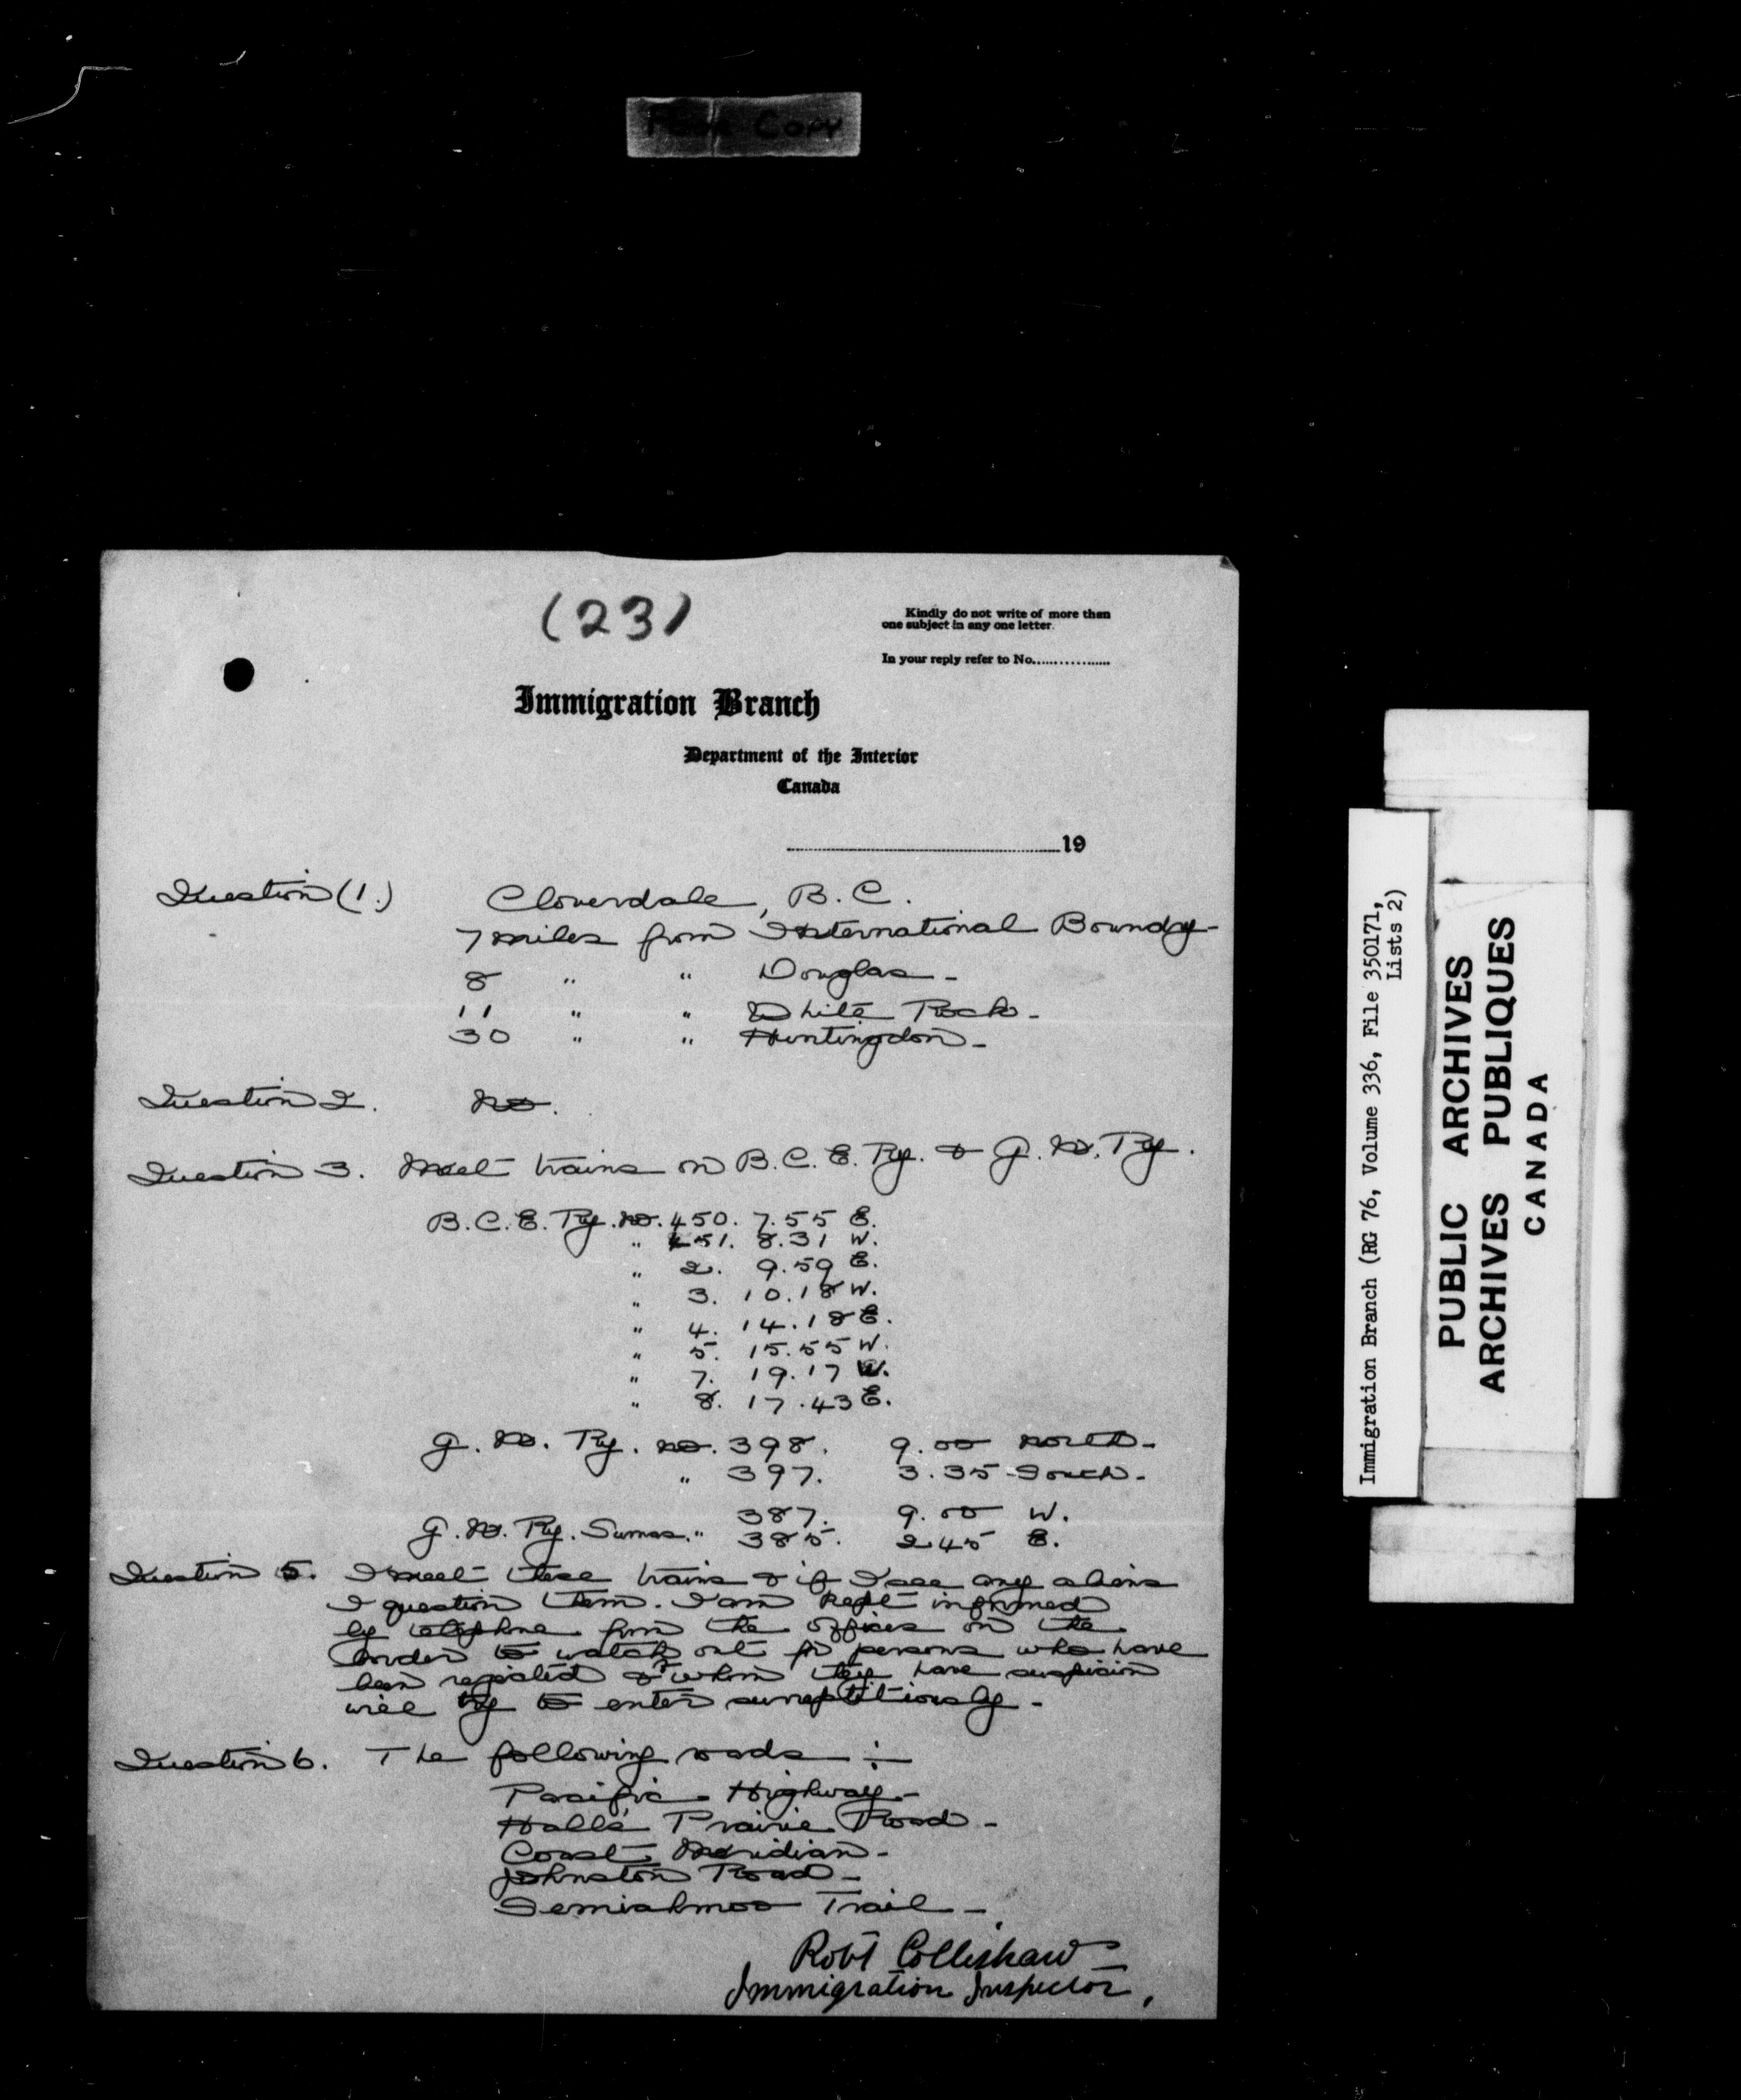 Poor Copy
(23)
Kindly do not write of more than
one subject in any one letter.
In your reply refer to No.................
Immigration Branch
Department of the Interior
Canada
19
Question (1.) Cloverdale, B.C.
7 miles from International Boundy-
8 " " Douglas -
11 " " White Rock -
30 " " Huntingdon -
Question 2. No.
Question 3. Meet trains on B.C.E. Ry. & G.N. Ry.
B.C.E. Ry. No. 450. 7.55 E.
" 451. 8.31 W.
" 2. 9.59 E.
" 3. 10.18 W.
" 4. 14.18 E.
" 5. 15.55 W.
" 7. 19.17 W.
" 8. 17.43 E.
G.N. Ry. No. 398. 9.00 North -
" 397. 3.35 - South -
387. 9.00 W.
G.N. Ry. Sumas. " 385. 245 E.
Question 5. I meet these trains & if I see any aliens
I question them. I am kept informed
by telephone from the offices on the
border to watch out for persons who have
been rejected & whom they have suspicion
will try to enter surreptitiously -
Question 6. The following roads :-
Pacific Highway -
Hall's Prairie Road -
Coast Meridian -
Johnston Road -
Semiahmoo Trail -
Robt Collishaw
Immigration Inspector,
Immigration Branch (RG 76, Volume 336, File 350171,
Lists 2)
PUBLIC ARCHIVES
ARCHIVES PUBLIQUES
CANADA